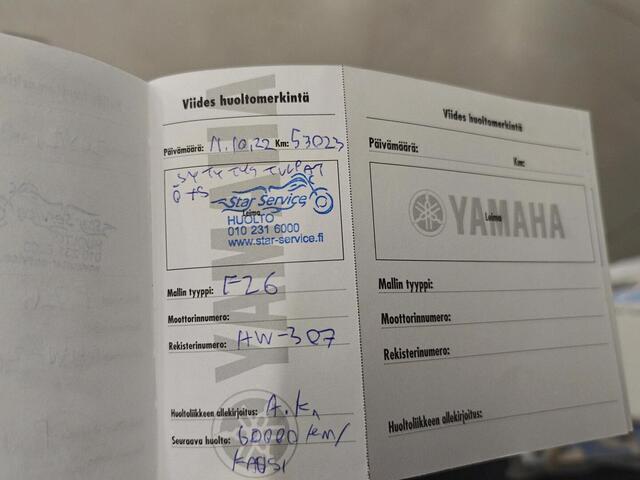 Viides huoltomerkintä
Päivämäärä: 11.10.22 Km: 53023
SYTYTYS TULPAT
Ö + S
Star Service
Leima
HUOLTO
010 231 6000
www.star-service.fi
Mallin tyyppi: FZ6
Moottorinnumero:
Rekisterinumero: HW-307
Huoltoliikkeen allekirjoitus: A.K.
Seuraava huolto: 60000 KM/
KAUSI
YAMAHA
Viides huoltomerkintä
Päivämäärä:
Km:
YAMAHA
Leima
Mallin tyyppi:
Moottorinnumero:
Rekisterinumero:
Huoltoliikkeen allekirjoitus: